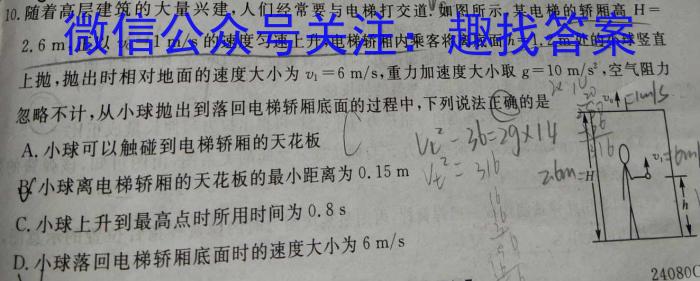 10.随着高层建筑的大量兴建,人们经常要与电梯打交道.如图所示,某电梯的轿厢高 H=
2.6 m,以 1 m/s 的速度匀速上升,电梯轿厢内乘客将离底面 处的小球竖直
微信公众号关注：趣找答案
上抛,抛出时相对地面的速度大小为 v₁=6 m/s,重力加速度大小取 g=10 m/s²,空气阻力
忽略不计,从小球抛出到落回电梯轿厢底面的过程中,下列说法正确的是
A. 小球可以触碰到电梯轿厢的天花板
B. 小球离电梯轿厢的天花板的最小距离为 0.15 m
C. 小球上升到最高点时所用时间为 0.8 s
D. 小球落回电梯轿厢底面时的速度大小为 6 m/s
C
Vt²-36=2g×14
Vt²=316
2.6m=H
v₀
v₁=6m/s
h
24080C